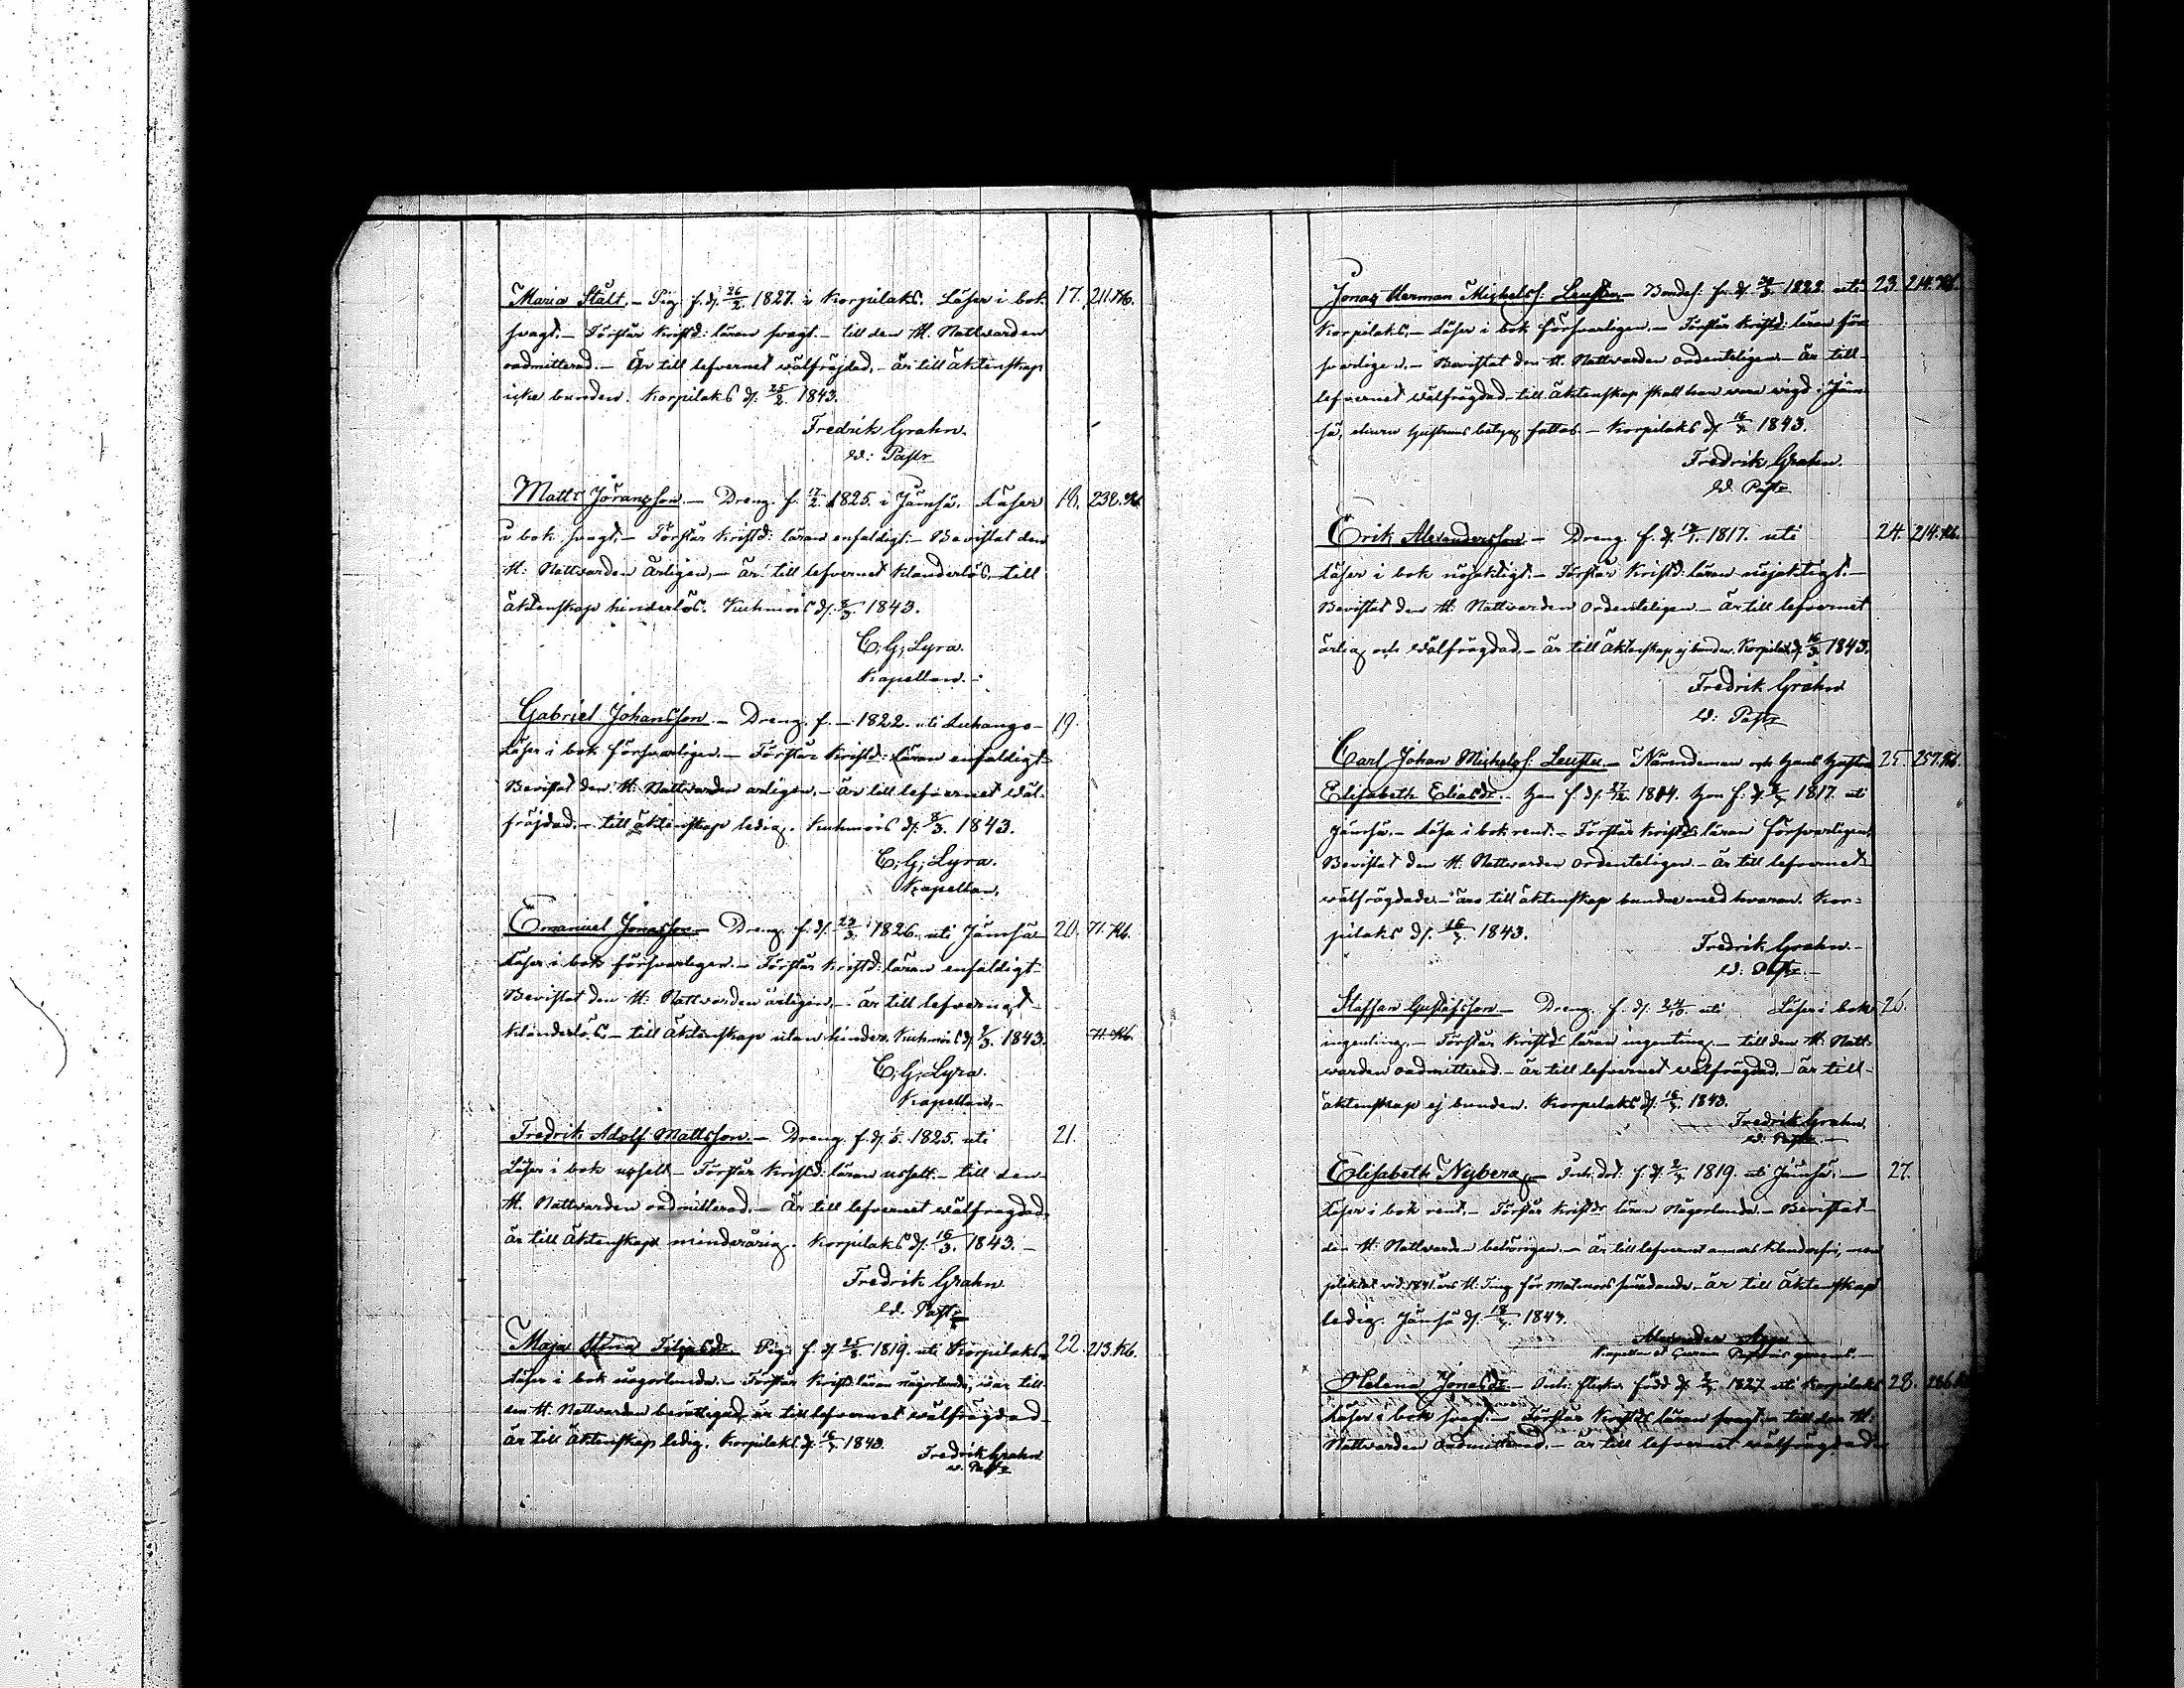 Maria Stålt. – Pig. f. d. 26/2. 1827. i Korpilaks. Läser i bok 17. 211. Kb.
svagt. – Förstår Kristd: läran svagt. – till den H. Nattvarden
oadmitterad. – Är till lefvernet wälfräjdad, – är till äktenskap
icke bunden. Korpilaks d: 25/2. 1843.
Fredrik Grahn.
Past:
Matts Jöransson. – Dreng. f. 1825. i Jämsä. Läser 18. 238. Kb
i bok svagt. – Förstår Kristd: läran enfaldigt. – Bevistat den
H: Nattvarden årligen, – är till lefvernet klanderlös, – till
äktenskap hinderlös. Kuhmois d. 8/3. 1843.
C; G; Lyra.
Kapellan. –
Gabriel Johansson. – Dreng. f. – 1822. uti Luhango – 19.
Läser i bok försvarligen. – Förstår Kristd: läran enfaldigt.
Bevistat den H: Nattvarden årligen. – är till lefvernet wäl-
fräjdad. – till äktenskap ledig. Kuhmois d: 8/3. 1843.
C; G; Lyra.
Kapellan.
Emanuel Jonasson – Dreng. f. d. 1826. uti Jämsä – 20. 71. Kb.
Läser i bok försvarligen. – Förstår Kristd: läran enfaldigt
Bevistat den H: Nattvarden årligen. – är till lefvernet
klanderlös, – till äktenskap utan hinder. Kuhmois d. 1843. 71. Kb.
C; G; Lyra.
Kapellan. –
Fredrik Adolf Mattsson. – Dreng f. d. 1825. uti 21.
Läser i bok uselt – Förstår Kristd: läran uselt. – till den
H. Nattvarden oadmitterad. – Är till lefvernet wälfrägdad,
är till äktenskap minderårig. Korpilaks d: 16/3. 1843. –
Fredrik Grahn
Past:
Maja Filipsdr. Pig. f. d. 1819. uti Korpilaks. 22. 213. Kb.
Läser i bok någorlunda. – Förstår Kristd: läran någorlunda, är till
den H. Nattvarden berättigad, är till lefvernet wälfrägdad
är till äktenskap ledig. Korpilaks d. 16/3 1843.
Fredrik Grahn
Past:
Jonas Herman Michelss: – Bondes. f. d. 1822 uti 23. 214. Kb.
Korpilaks, – Läser i bok försvarligen. – Förstår Kristd: läran för-
svarligen. – Bevistat den H. Nattvarden ordenteligen – är till
lefvernet wälfrägdad – till äktenskap skall han vara vigd i Jäm-
sä, hustruns betyg fattas. – Korpilaks d. 16/3 1843.
Fredrik Grahn.
Past:
Erik Alexandersson – Dreng. f. d. 1817. uti 24. 214. Kb.
Läser i bok nöjaktigt. – Förstår Kristd: läran nöjaktigt. –
Bevistat den H. Nattvarden ordenteligen – är till lefvernet
ärlig och wälfrägdad. – är till äktenskap ej bunden. Korpilaks d. 16/3 1843.
Fredrik Grahn
Past:
Carl Johan Michelss: – Nämndeman och Hans Hustru 25. 257. Kb.
Elisabeth Eliasdr. – Han f. d. 1814. Hon f. d. 1817. uti
Jämsä. – Läsa i bok rent. – Förstår Kristd: läran försvarligen.
Bevistat den H. Nattvarden ordenteligen – är till lefvernet
wälfrägdade – äro till äktenskap bundne med hvaran. Kor-
pilaks d. 16/3. 1843.
Fredrik Grahn. –
Past: –
Staffan Gustafsson – Dreng f. d. uti Läser i bok 26.
ingenting. – Förstår Kristd: läran ingenting. – till den H. Natt-
warden oadmitterad. – är till lefvernet wälfrägdad. – är till
äktenskap ej bunden. Korpilaks d: 16/3 1843.
Fredrik Grahn
Past: –
Elisabeth Nyberg, – f. d. 1819. uti Jämsä. – 27.
Läser i bok rent. – Förstår Kristd: läran någorlunda. – Bevistat
den H: Nattvarden behörigen. – är till lefvernet annars klanderfri, men
vid 1841 års H. Ting för – är till äktenskap
ledig. Jämsä d. 18/3 1843.
Alexander
Kapellan
Helena Jonasdr – född d. 1827 uti Korpilaks 28. 286.
Läser i bok svagt. – Förstår Kristd: läran svagt. – till den H:
Nattvarden oadmitterad. – är till lefvernet wälfrägdad.